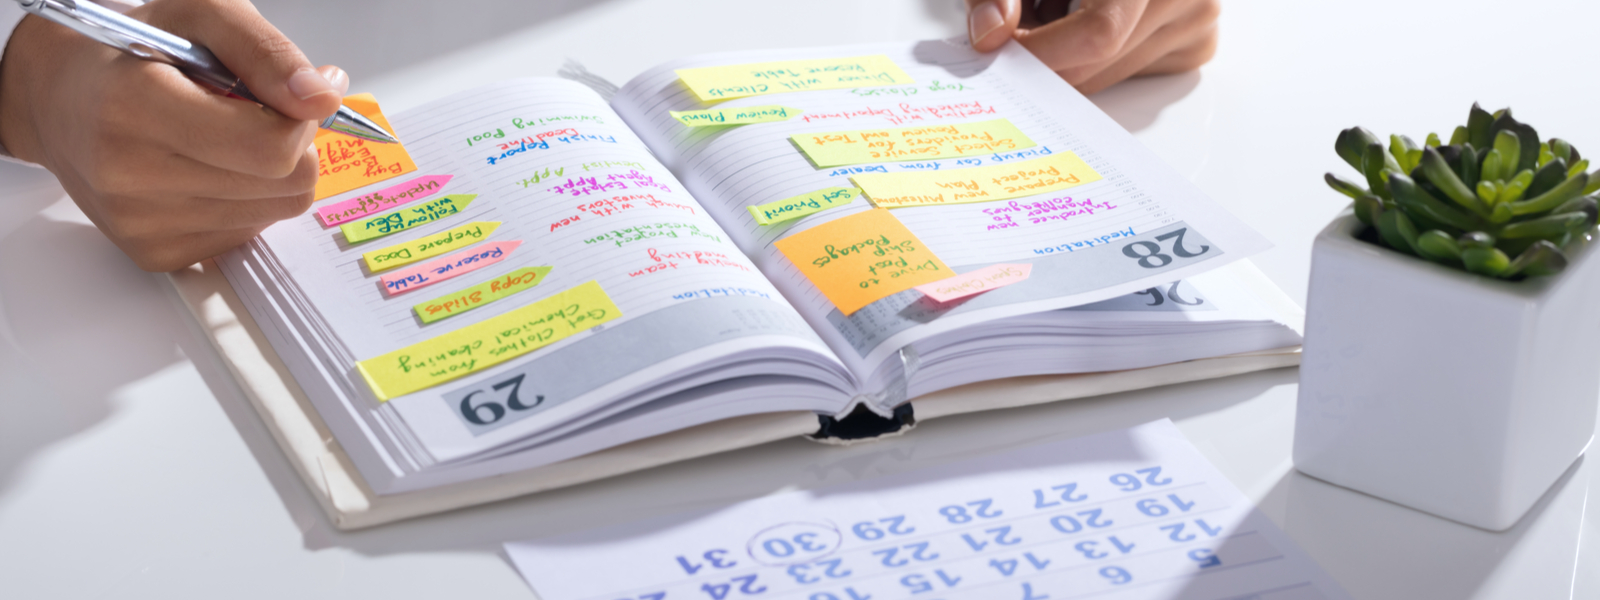 28
Meditation
Introduce new
Manager to
colleagues
Prepare new Milestone
Project Plan
Pickup Car from Dealer
Select Service
Providers for
Review and Test
Meeting with
Marketing Department
Yoga Classes
Dinner with Clients
Reserve Table
Drive to
Ship Post
Packages
Set Priorit
Review Plans
26
29
Meditation
Weekly team
meeting
New Project
Presentation
Lunch with new
Investors
Real Estate
Agent Appt
Dentist Appt.
Finish Report
Deadline
Swimming Pool
Get Clothes from
Chemical cleaning
Copy Slides
Reserve Table
Prepare Docs
Follow up
with Dev
Update Charts
Buy
Bacon
Eggs
5 6 7
12 13 14 15
19 20 21 22 23 24
26 27 28 29 30 31